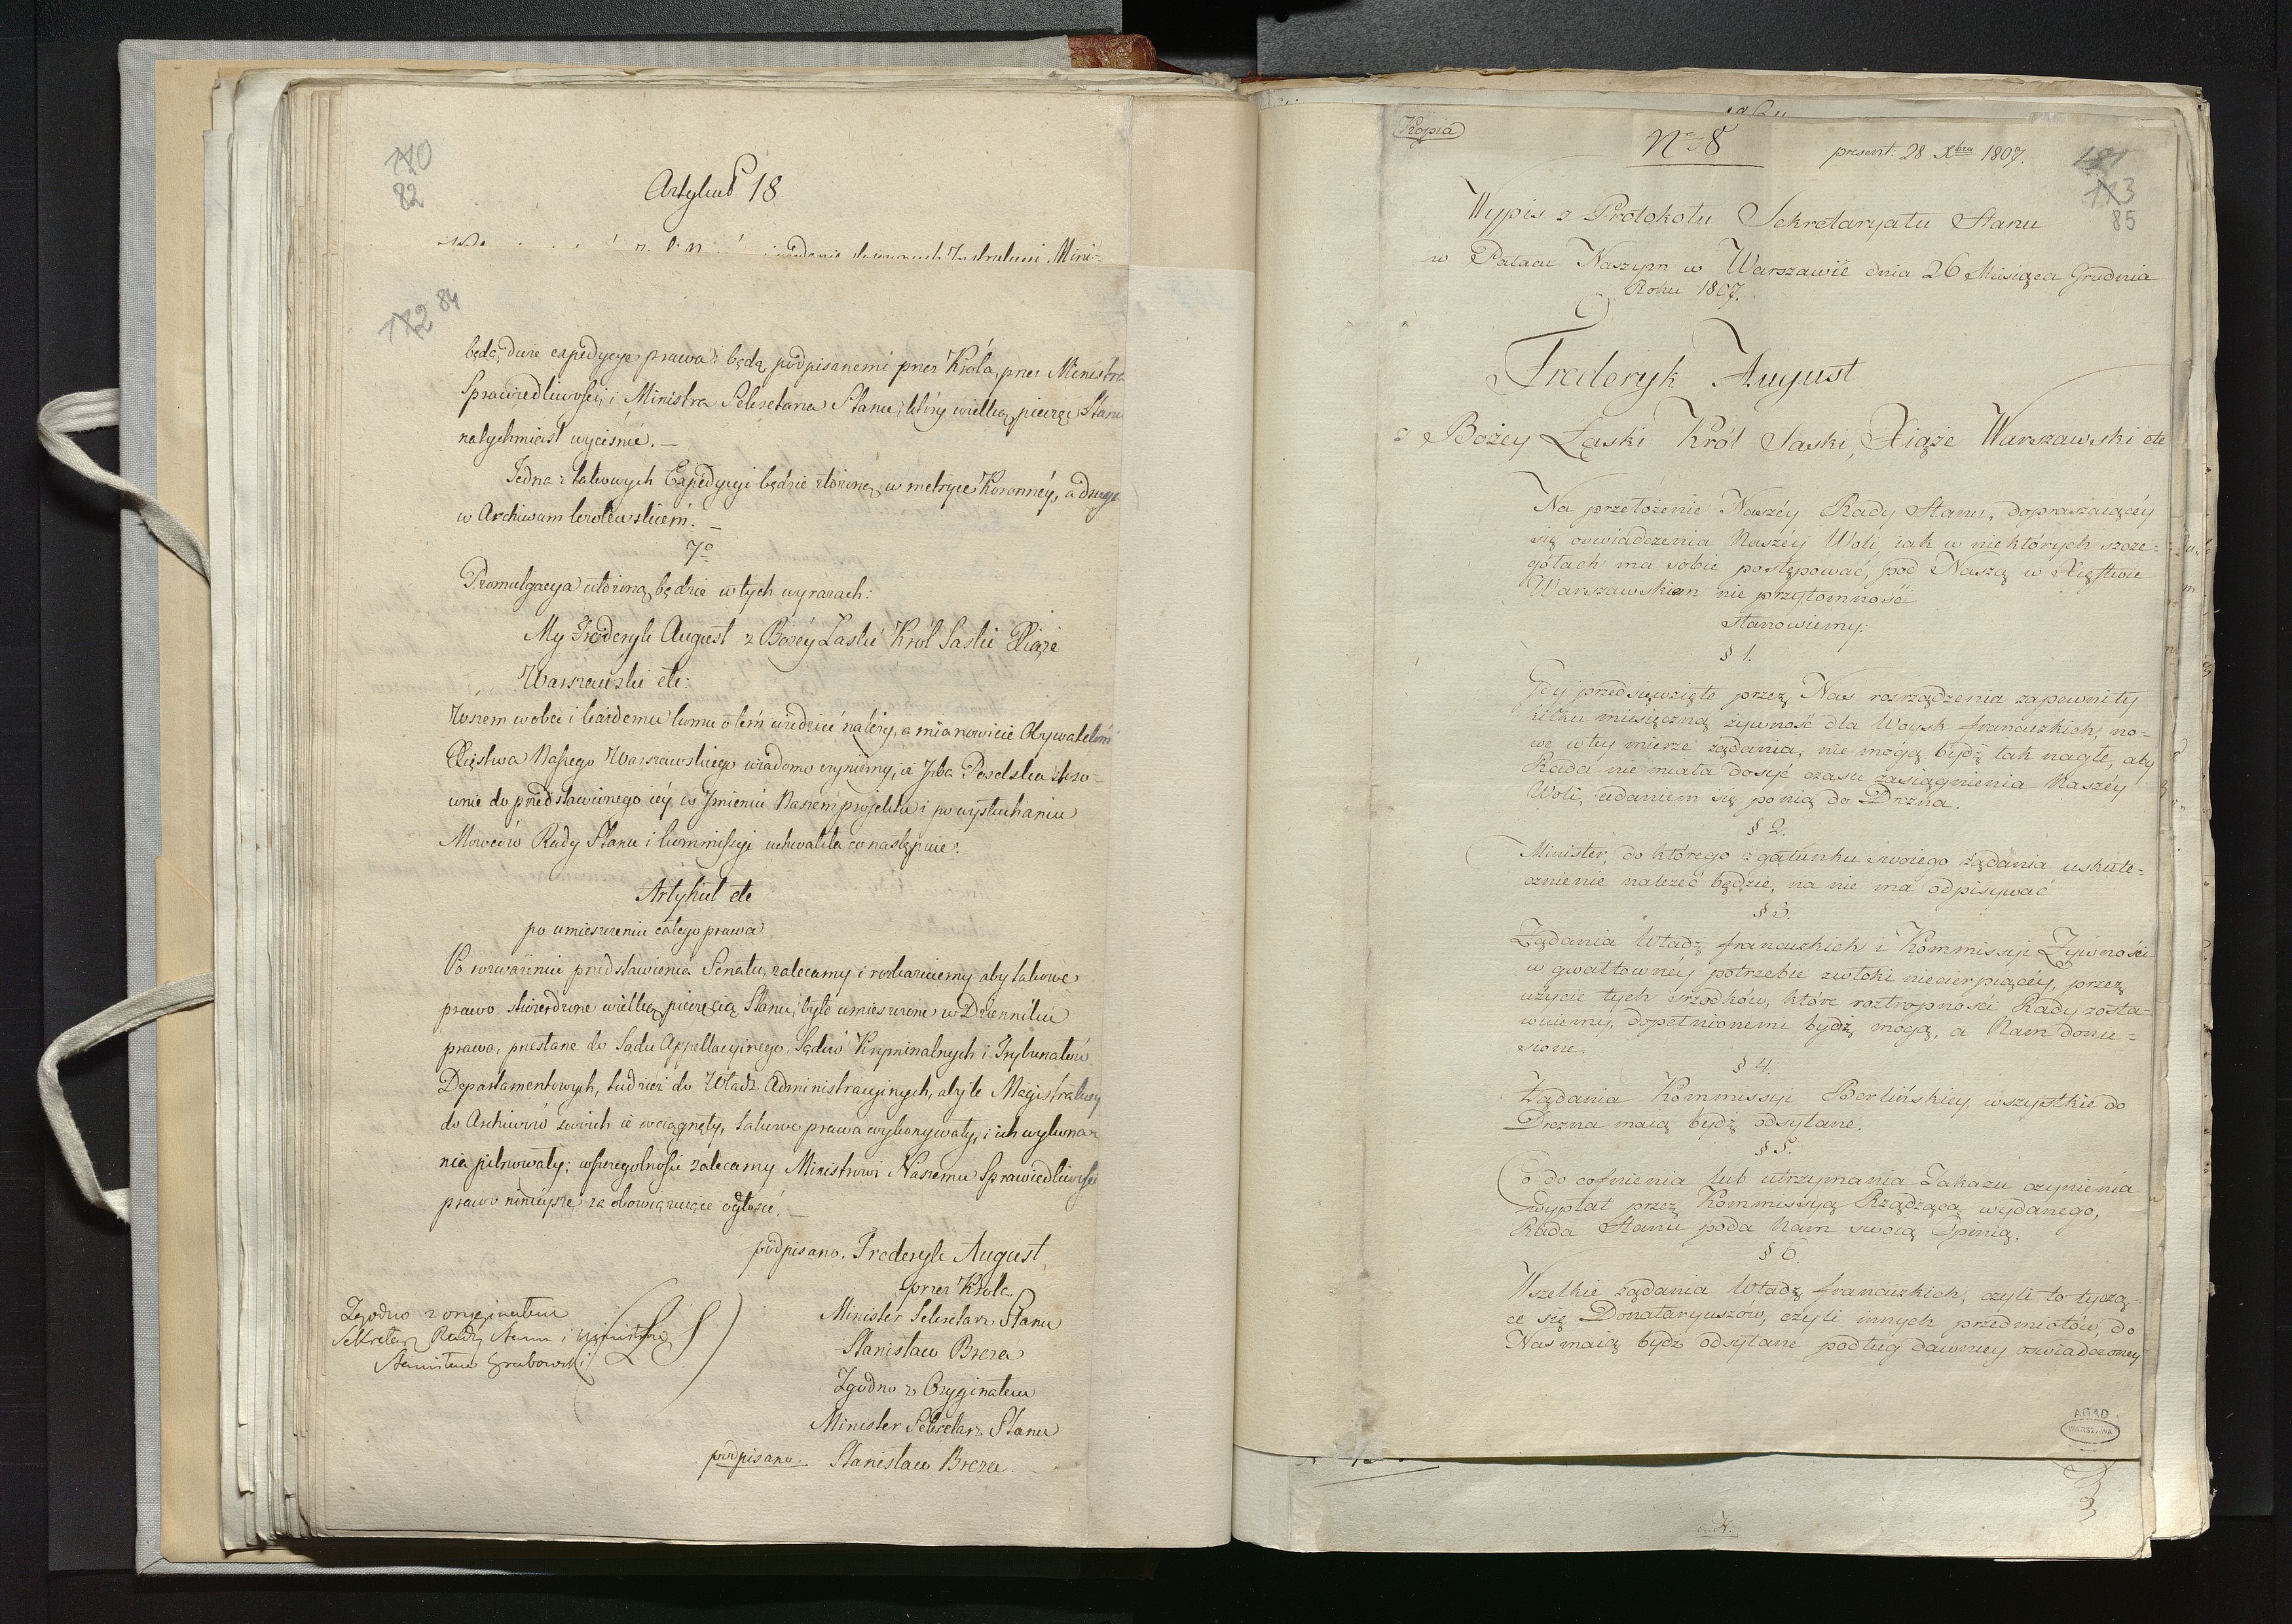 110
82
Artykuł 18.
172 84
będą, dwie expedycye prawa będą podpisanemi przez Króla, przez Ministra
Sprawiedliwości, i Ministra Sekretarza Stanu, który wielką pieczęć Stanu
natychmiast wyciśnie. —
Jedna z takowych Expedycyi będzie złożoną w metryce Koronnéy, a druga
w Archiwum królewskiém. —
7o
Promulgacya ułożoną będzie w tych wyrazach:
My Frideryk August z Bożéy Łaski Król Saski Xiąże
Warszawski etc:
Wszem wobec i każdemu komu o tém wiedzieć należy, a mianowicie Obywatelom
Xięstwa Naszego Warszawskiego wiadomo czyniemy, iż Izba Poselska stoso-
wnie do przedstawionego iéy w Imieniu Naszém projektu i po wysłuchaniu
Mowców Rady Stanu i kommissyi uchwaliła co następuie:
Artykuł etc
po umieszczeniu całego prawa
Po rozważeniu przedstawienia Senatu, zalecamy i rozkazuiemy aby takowe
prawo stwierdzone wielką pieczęcią Stanu, było umieszczone w Dzienniku
prawa, przesłane do Sądu Appellacyinego, Sądów Kryminalnych i Trybunałów
Departamentowych, tudzież do Władz Administracyinych, aby te Magistratury
do Archiwów swoich ie wciągnęły, takowe prawa wykonywały, i ich wykona-
nia pilnowały; w szczególności zalecamy Ministrowi Naszemu Sprawiedliwości
prawo ninieysze za obowiązuiące ogłosić. —
podpisano. Frederyk August,
przez Króla
Minister Sekretarz Stanu
Stanisław Breza
Zgodno z Oryginałem
Minister Sekretarz Stanu
podpisano. Stanisław Breza. —
Zgodno z oryginałem
Sekretarz Rady Stanu i Ministrów
Stanisław Grabowski
LS
Kopia
No 8
present: 28 Xbra 1807.
113
85
Wypis z Protokołu Sekretaryatu Stanu
w Pałacu Naszym w Warszawie dnia 26 Miesiąca Grudnia
Roku 1807.
Frederyk August
z Bożey Łaski Król Saski, Xiąże Warszawski etc
Na przełożenie Naszéy Rady Stanu, dopraszaiącéy
się oswiadczenia Naszéy Woli, iak w niektórych szcze-
gółach ma sobie postępować, pod Naszą w Xięstwie
Warszawskiem nie przytomność
Stanowiemy:
§ 1.
Gdy przedsięwzięte przez Nas rozrządzenia zapewniły
kilku miesięczną żywność dla Woysk francuzkich, no-
we w tey mierze żądania, nie mogą bydź tak nagłe, aby
Rada nie miała dosyć czasu zasiągnienia Naszéy
Woli, udaniem się po nią do Drezna.
§ 2.
Minister, do którego z gatunku swoiego żądania uskute-
cznienie należeć będzie, na nie ma odpisywać
§ 3.
Żądania Władz francuzkich i Kommissyi Żywności
w gwałtownéy potrzebie zwłoki niecierpiącéy, przez
użycie tych srzodków, które roztropności Rady zosta-
wuiemy, dopełnionemi bydź mogą, a Nam donie-
sione.
§ 4.
Żądania Kommissyi Berlińskiey, wszystkie do
Drezna maią bydź odsyłane.
§ 5.
Co do cofnienia lub utrzymania Zakazu czynienia
wypłat przez Kommissyą Rządzącą wydanego,
Rada Stanu poda Nam swoią Opinią.
§ 6.
Wszelkie żądania Władz francuzkich, czyli to tyczą-
ce się Donataryuszów, czyli innych przedmiotów, do
Nas maią bydź odsyłane podług dawniey oswiadczoney
AGAD
WARSZAWA